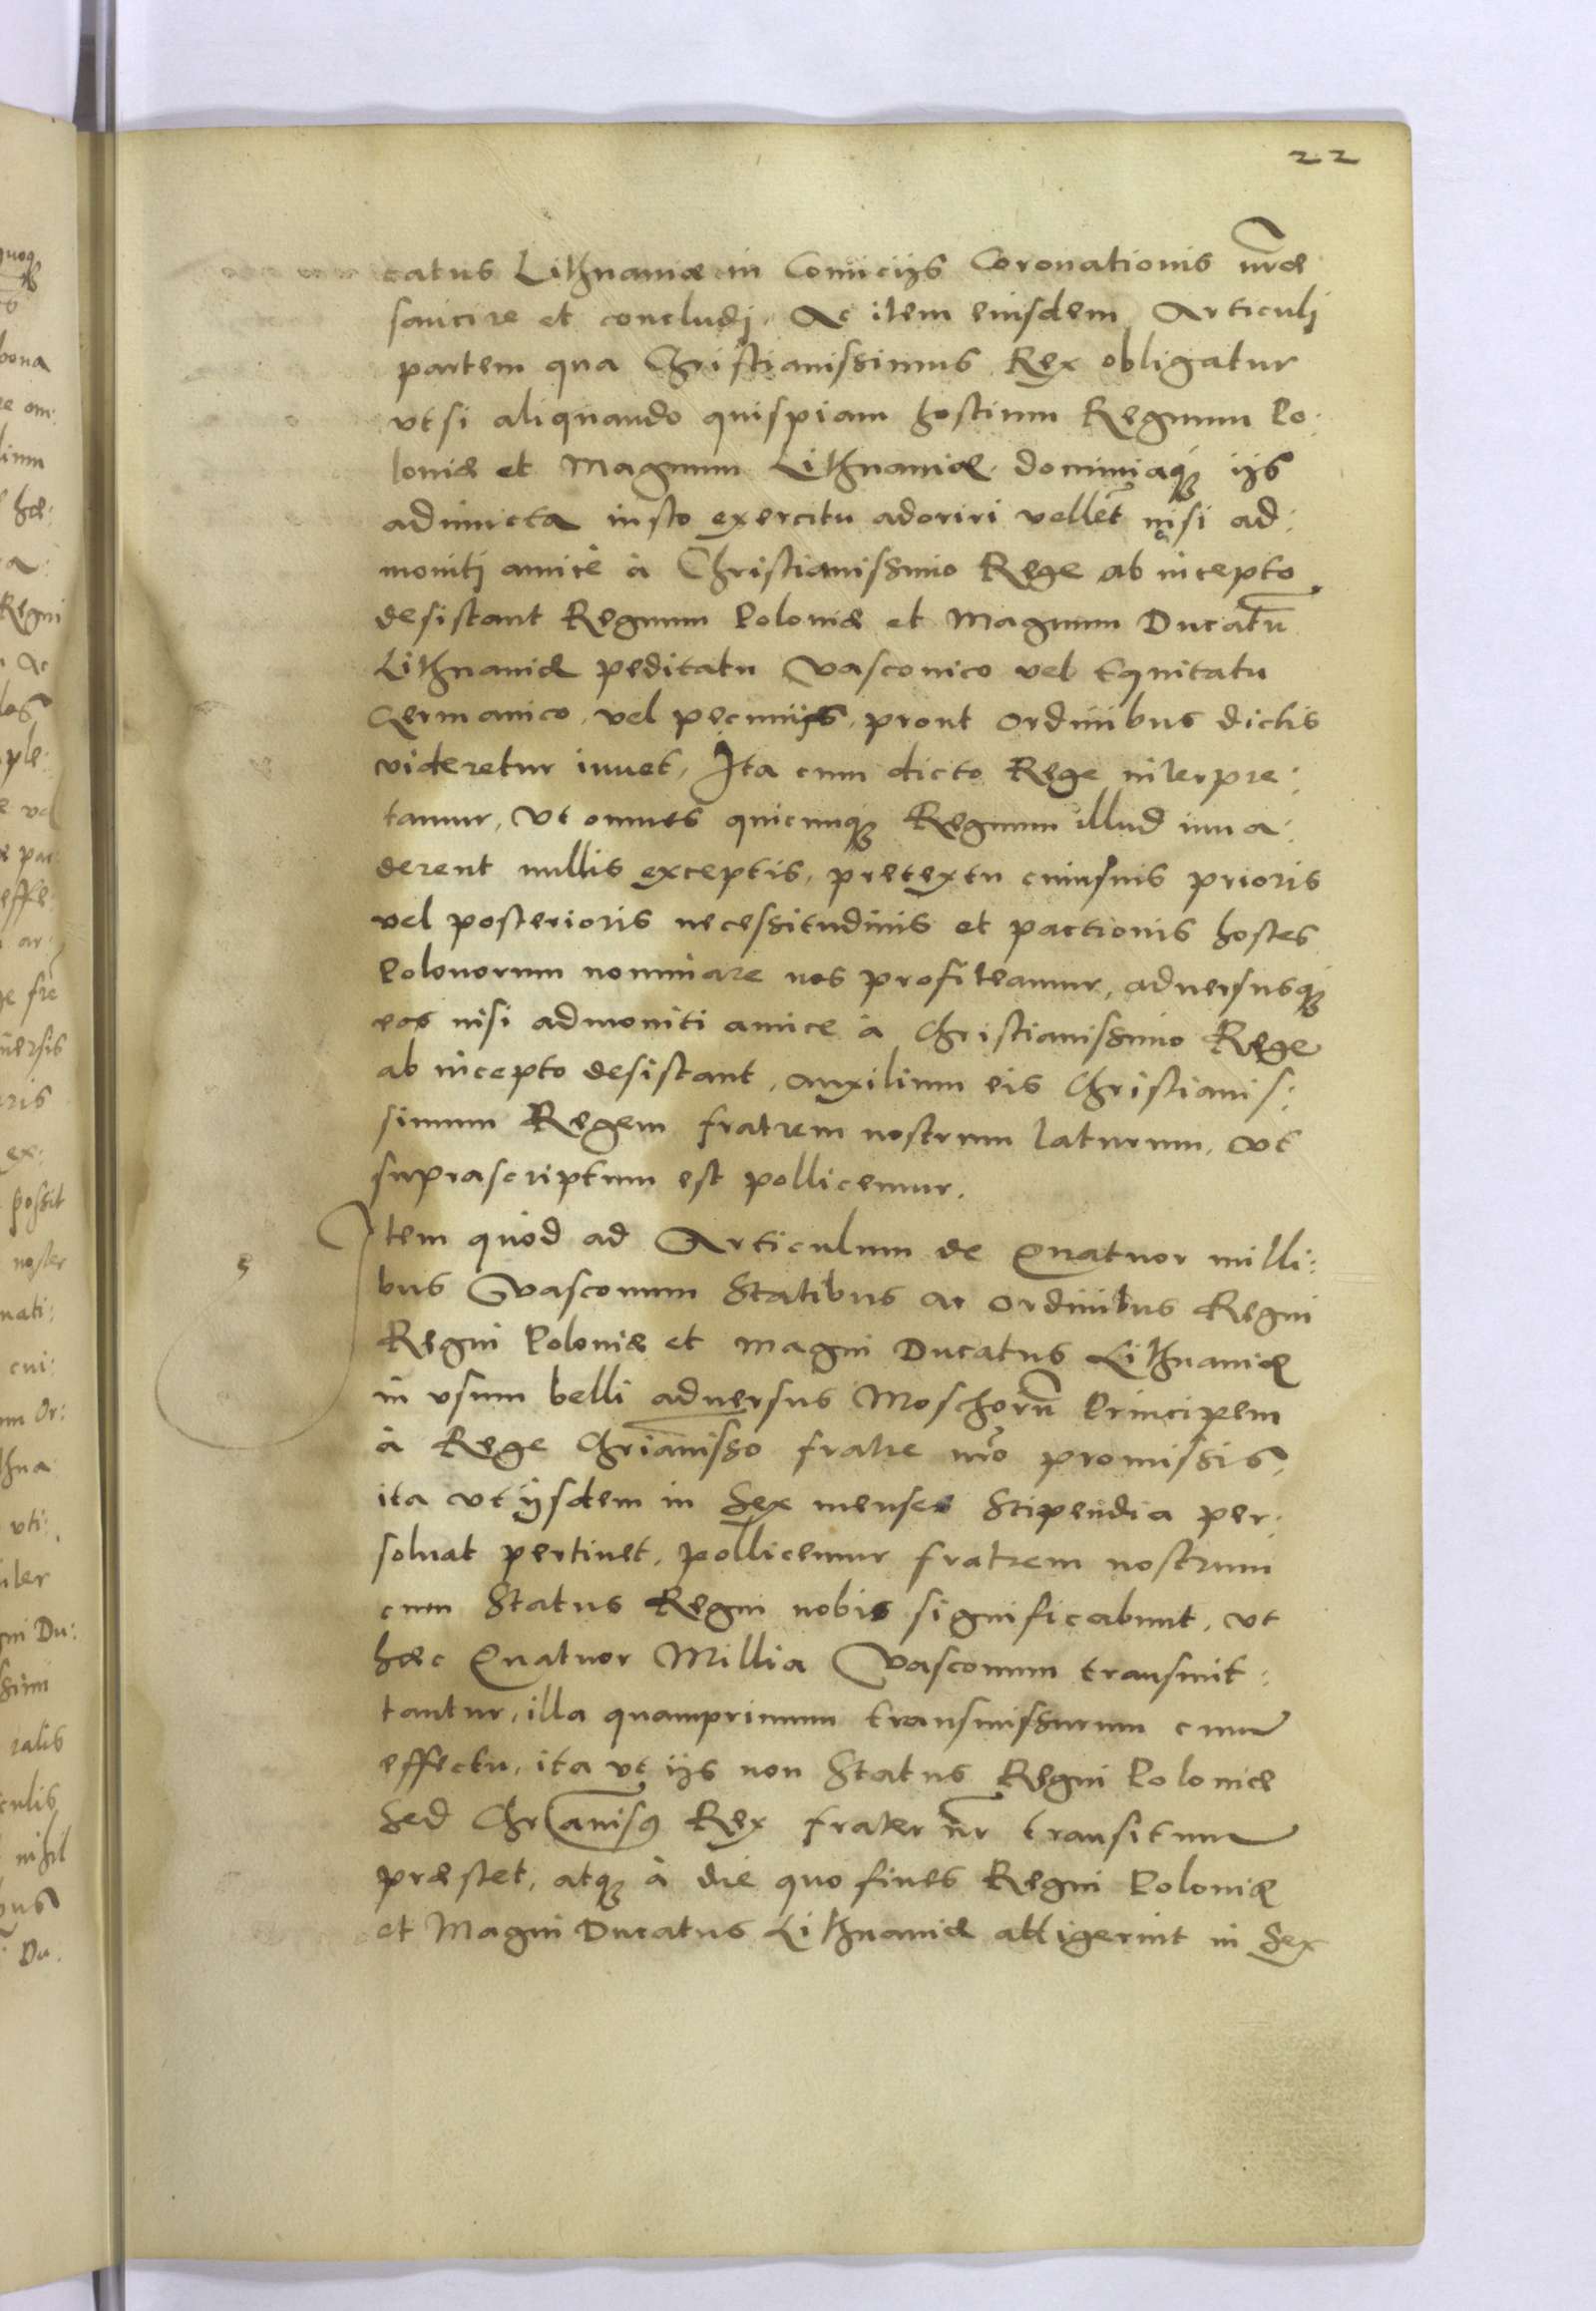 22
catus Lithuaniæ in Comicijs Coronationis nr̃æ
sancire et concludj. Ac item eiusdem Articulj
partem qua Christianissimus Rex obligatur
vt si aliquando quispiam hostium Regnum Po:
loniæ et Magnum Lithuaniæ dominiaq3 ijs
adiuncta iusto exercitu adoriri vellet nisi ad:
monitj amicè à Christianissimo Rege ab incepto
desistant Regnum Poloniæ et Magnum Ducatũ
Lithuaniæ peditatu Vasconico vel Equitatu
Germanico, vel pecunijs, prout ordinibus dictis
videretur iuuet, Ita cum dicto Rege interpre:
tamur, Vt omnes quicunq3 Regnum illud inua:
derent nullis exceptis, pretextu cuiusuis prioris
vel posterioris necessitudinis et pactionis hostes
Polonorum nominare nos profiteamur, aduersusq3
eos nisi admoniti amice à Christianissimo Rege
ab incepto desistant, auxilium eis Christianis:
simum Regem fratrem nostrum laturum, vt
suprascriptum est pollicemur.
Item quod ad Articulum de Quatuor milli:
5
bus Vasconum Statibus ac ordinibus Regni
Regni Poloniæ et Magni Ducatus Lithuaniæ
in vsum belli aduersus Moschorũ Principem
à Rege Chrianisso fratre nr̃o promissis,
ita vt ijsdem in Sex menses Stipendia per:
soluat pertinet, pollicemur fratrem nostrum
cum Status Regni nobis significabunt, vt
hæc Quatuor Millia Vasconum transmit:
tantur, illa quamprimum transmissurum cum
effectu, ita vt ijs non Status Regni Poloniæ
Sed Chrianiss9 Rex frater nr̃ transitum
præstet, atq3 à die quo fines Regni Poloniæ
et Magni Ducatus Lithuaniæ attigerint in Sex